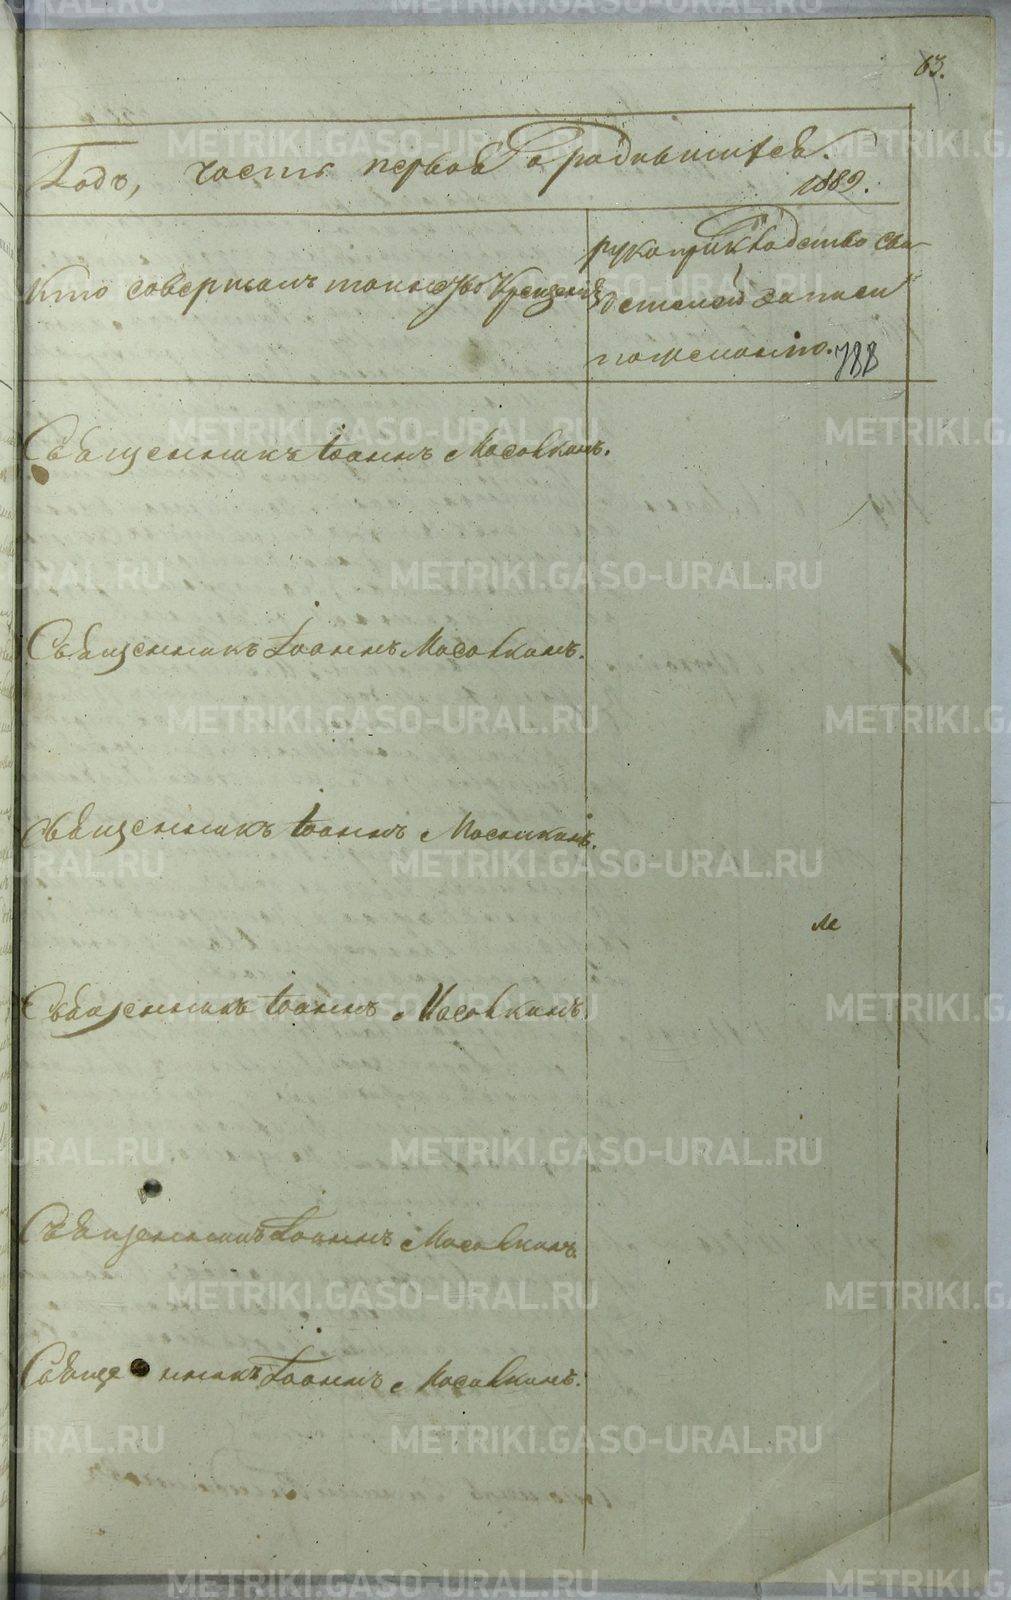 63.
Годъ, часть первая о родившихся.
1889.
Кто совершалъ таинство Крещенія
рукоприкладство сви-
детелей записи
по желанію. 788
Священникъ Іоаннъ Масовкинъ.
Священникъ Іоаннъ Масовкинъ.
Священникъ Іоаннъ
Священникъ Іоаннъ Масовкинъ.
Священникъ Іоаннъ Масовкинъ.
Священникъ Іоаннъ Масовкинъ.
METRIKI.GASO-URAL.RU